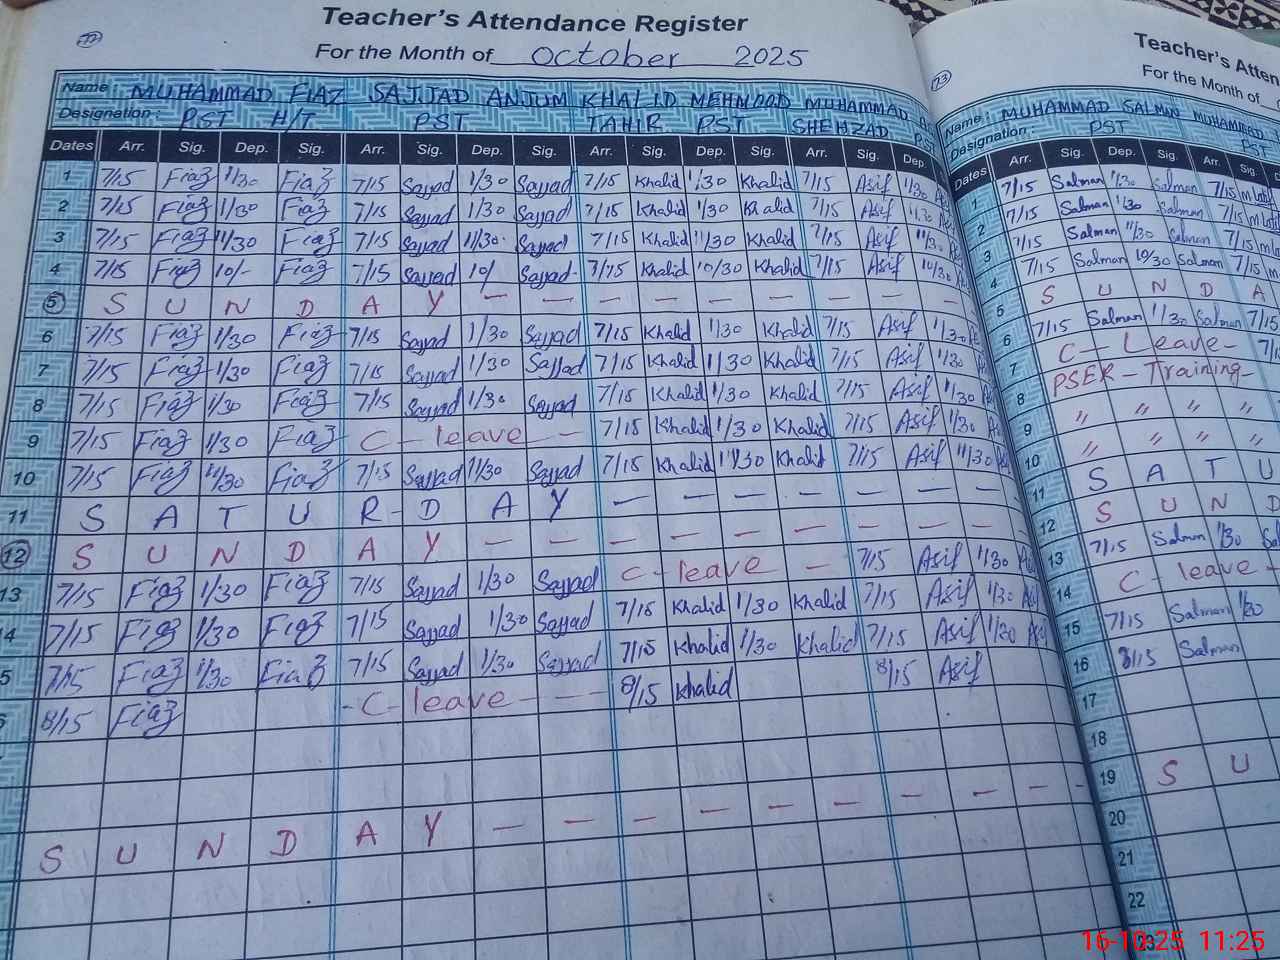 Teacher's Attendance Register
For the Month of October 2025
Name: MUHAMMAD FIAZ SAJJAD ANJUM KHALID MEHMOOD MUHAMMAD
Designation: PST H/T PST TAHIR PST SHEHZAD PST
Dates Arr. Sig. Dep. Sig. Arr. Sig. Dep. Sig. Arr. Sig. Dep. Sig. Arr. Sig. Dep.
1 7/15 Fiaz 1/30 Fiaz 7/15 Sajjad 1/30 Sajjad 7/15 Khalid 1/30 Khalid 7/15 Asif 1/30
2 7/15 Fiaz 1/30 Fiaz 7/15 Sajjad 1/30 Sajjad 7/15 Khalid 1/30 Khalid 7/15 Asif 1/30
3 7/15 Fiaz 11/30 Fiaz 7/15 Sajjad 11/30 Sajjad 7/15 Khalid 11/30 Khalid 7/15 Asif 11/30
4 7/15 Fiaz 10/- Fiaz 7/15 Sajjad 10/ Sajjad 7/15 Khalid 10/30 Khalid 7/15 Asif 10/30
5 S U N D A Y — — — — — — — —
6 7/15 Fiaz 1/30 Fiaz 7/15 Sajjad 1/30 Sajjad 7/15 Khalid 1/30 Khalid 7/15 Asif 1/30
7 7/15 Fiaz 1/30 Fiaz 7/15 Sajjad 1/30 Sajjad 7/15 Khalid 1/30 Khalid 7/15 Asif 1/30
8 7/15 Fiaz 1/30 Fiaz 7/15 Sajjad 1/30 Sajjad 7/15 Khalid 1/30 Khalid 7/15 Asif 1/30
9 7/15 Fiaz 1/30 Fiaz C - leave - 7/15 Khalid 1/30 Khalid 7/15 Asif 1/30
10 7/15 Fiaz 11/30 Fiaz 7/15 Sajjad 11/30 Sajjad 7/15 Khalid 11/30 Khalid 7/15 Asif 11/30
11 S A T U R D A Y — — — — — —
12 S U N D A Y — — — — — — — —
13 7/15 Fiaz 1/30 Fiaz 7/15 Sajjad 1/30 Sajjad C - leave - 7/15 Asif 1/30
4 7/15 Fiaz 1/30 Fiaz 7/15 Sajjad 1/30 Sajjad 7/15 Khalid 1/30 Khalid 7/15 Asif 1/30
5 7/15 Fiaz 1/30 Fiaz 7/15 Sajjad 1/30 Sajjad 7/15 Khalid 1/30 Khalid 7/15 Asif 1/30
8/15 Fiaz - C - leave - 8/15 Khalid 8/15 Asif
S U N D A Y — — — — — — — — —
73
Teacher's Atten
For the Month of
Name: MUHAMMAD SALMAN MUHAMMAD
Designation: PST PST
Dates Arr. Sig. Dep. Sig. Arr. Sig.
1 7/15 Salman 1/30 Salman 7/15
2 7/15 Salman 1/30 Salman 7/15
3 7/15 Salman 11/30 Salman 7/15
4 7/15 Salman 10/30 Salman 7/15
5 S U N D A
6 7/15 Salman 1/30 Salman 7/15
7 C - Leave -
8 PSER - Training -
9 " " " "
10 " " " "
11 S A T U
12 S U N D
13 7/15 Salman 1/30
14 C - leave -
15 7/15 Salman 1/30
16 8/15 Salman
17
18
19 S U
20
21
22
16-10-25 11:25